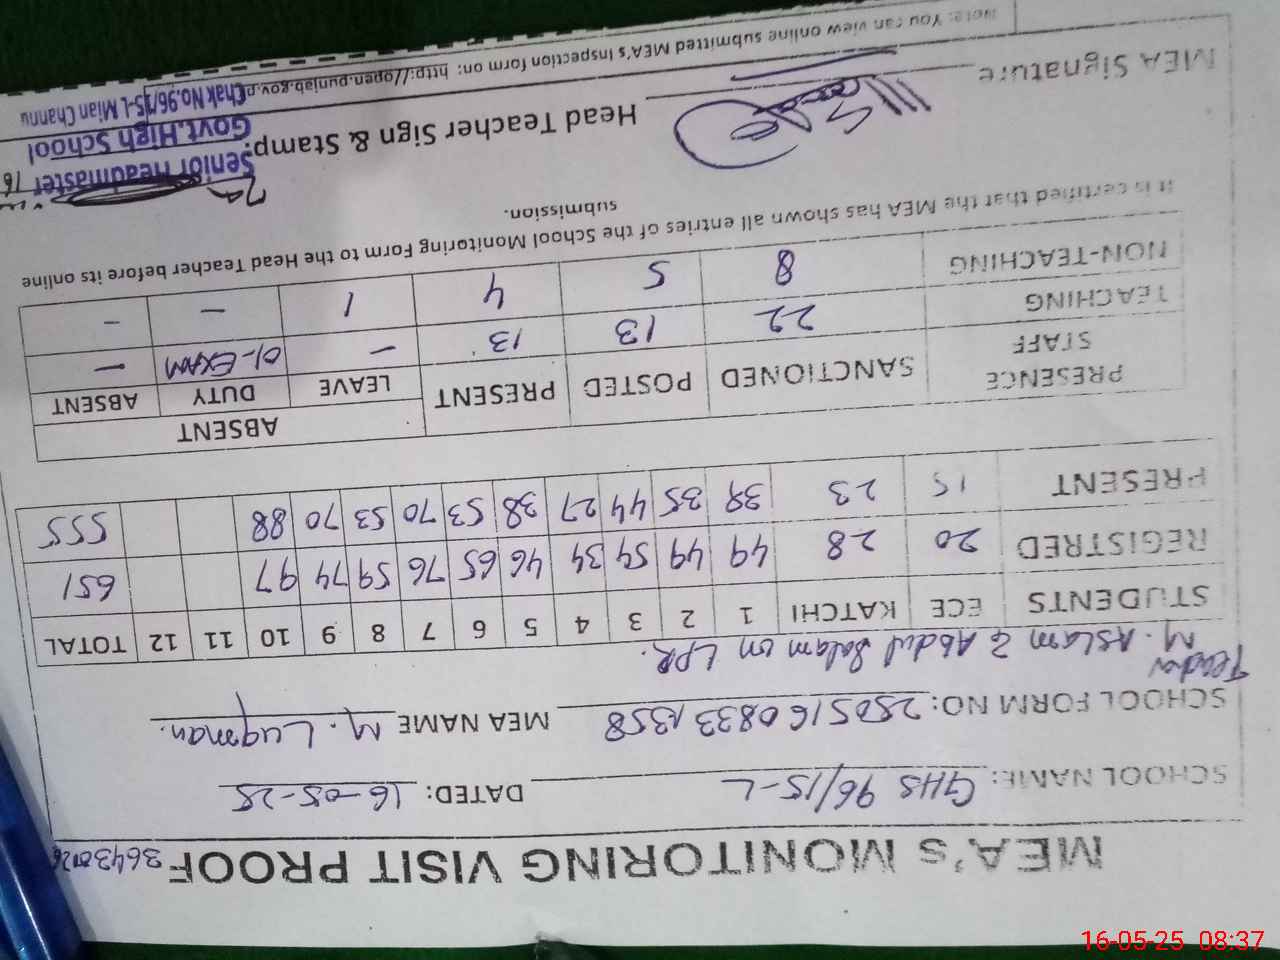 MEA's MONITORING VISIT PROOF
SCHOOL NAME: GHS 96/15-L DATED: 16-05-25
SCHOOL FORM NO: MEA NAME M. Luqman.
Teacher M. Aslam & Abdul Salam on LPR.
STUDENTS ECE KATCHI 1 2 3 4 5 6 7 8 9 10 11 12 TOTAL
REGISTRED 20 28 49 49 54 34 46 65 76 59 74 97 651
PRESENT 15 23 39 35 44 27 38 53 70 53 70 88 555
PRESENCE STAFF SANCTIONED POSTED PRESENT ABSENT
LEAVE DUTY ABSENT
TEACHING 22 13 13 — 01-EXAM —
NON-TEACHING 8 5 4 1 — –
It is certified that the MEA has shown all entries of the School Monitoring Form to the Head Teacher before its online
submission.
MEA Signature Head Teacher Sign & Stamp:
Senior Headmaster
Govt.High School
Chak No.96/15-L Mian Channu
Note: You can view online submitted MEA's inspection form on: http://open.punjab.gov.p
16-05-25 08:37